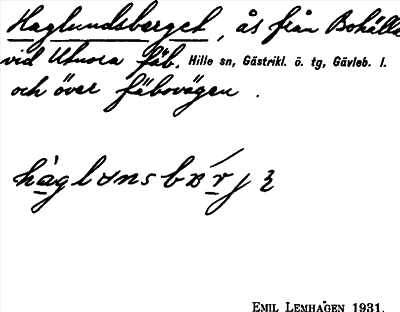 Haglundsberget, ås från Bohålla
vid Utnora fäb. Hille sn, Gästrikl. ö. tg, Gävleb. l.
och över fäbovägen.
EMIL LEMHAGEN 1931.